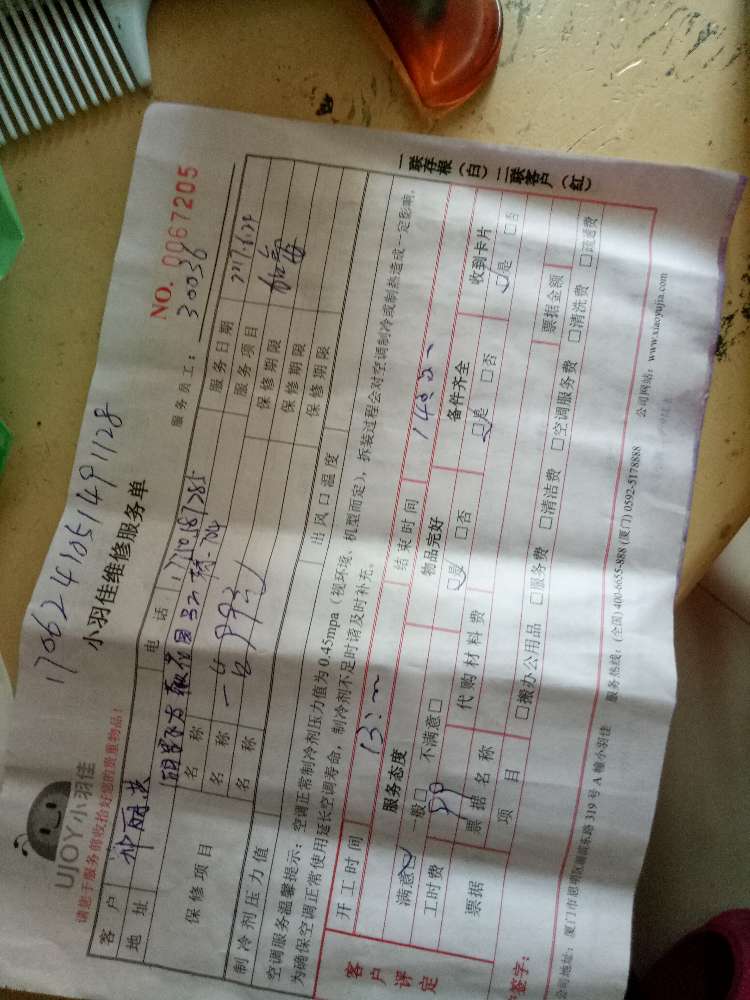 170624105149 1128
UJOY小羽佳
小羽佳维修服务单
NO. 0067205
请您于服务前收拾好您的贵重物品!
服务员工: 30036
客户 电话: 服务日期
地址 服务项目
保修项目 名称 保修期限
名称 保修期限
名称 保修期限
制冷剂压力值 出风口温度
空调服务温馨提示:空调正常制冷剂压力值为0.45mpa(视环境、机型而定),拆装过程会对空调制冷或制热造成一定影响,
为确保空调正常使用延长空调寿命,制冷剂不足时请及时补充。
客户评定 开工时间 结束时间
服务态度 物品完好 备件齐全 收到卡片
满意 一般□ 不满意□ □是 □否 □是 □否 □是 □否
工时费 99 代购材料费
票据 票据名称 票据金额
项目 □搬办公用品 □服务费 □清洁费 □空调服务费 □清洗费
签字:
公司地址:厦门市思明区 319号A幢小羽佳 服务热线:(全国)400-6655-888 (厦门)0592-5178888 公司网站:www.xiaoyujia.com
一联存根(白)二联客户(红)